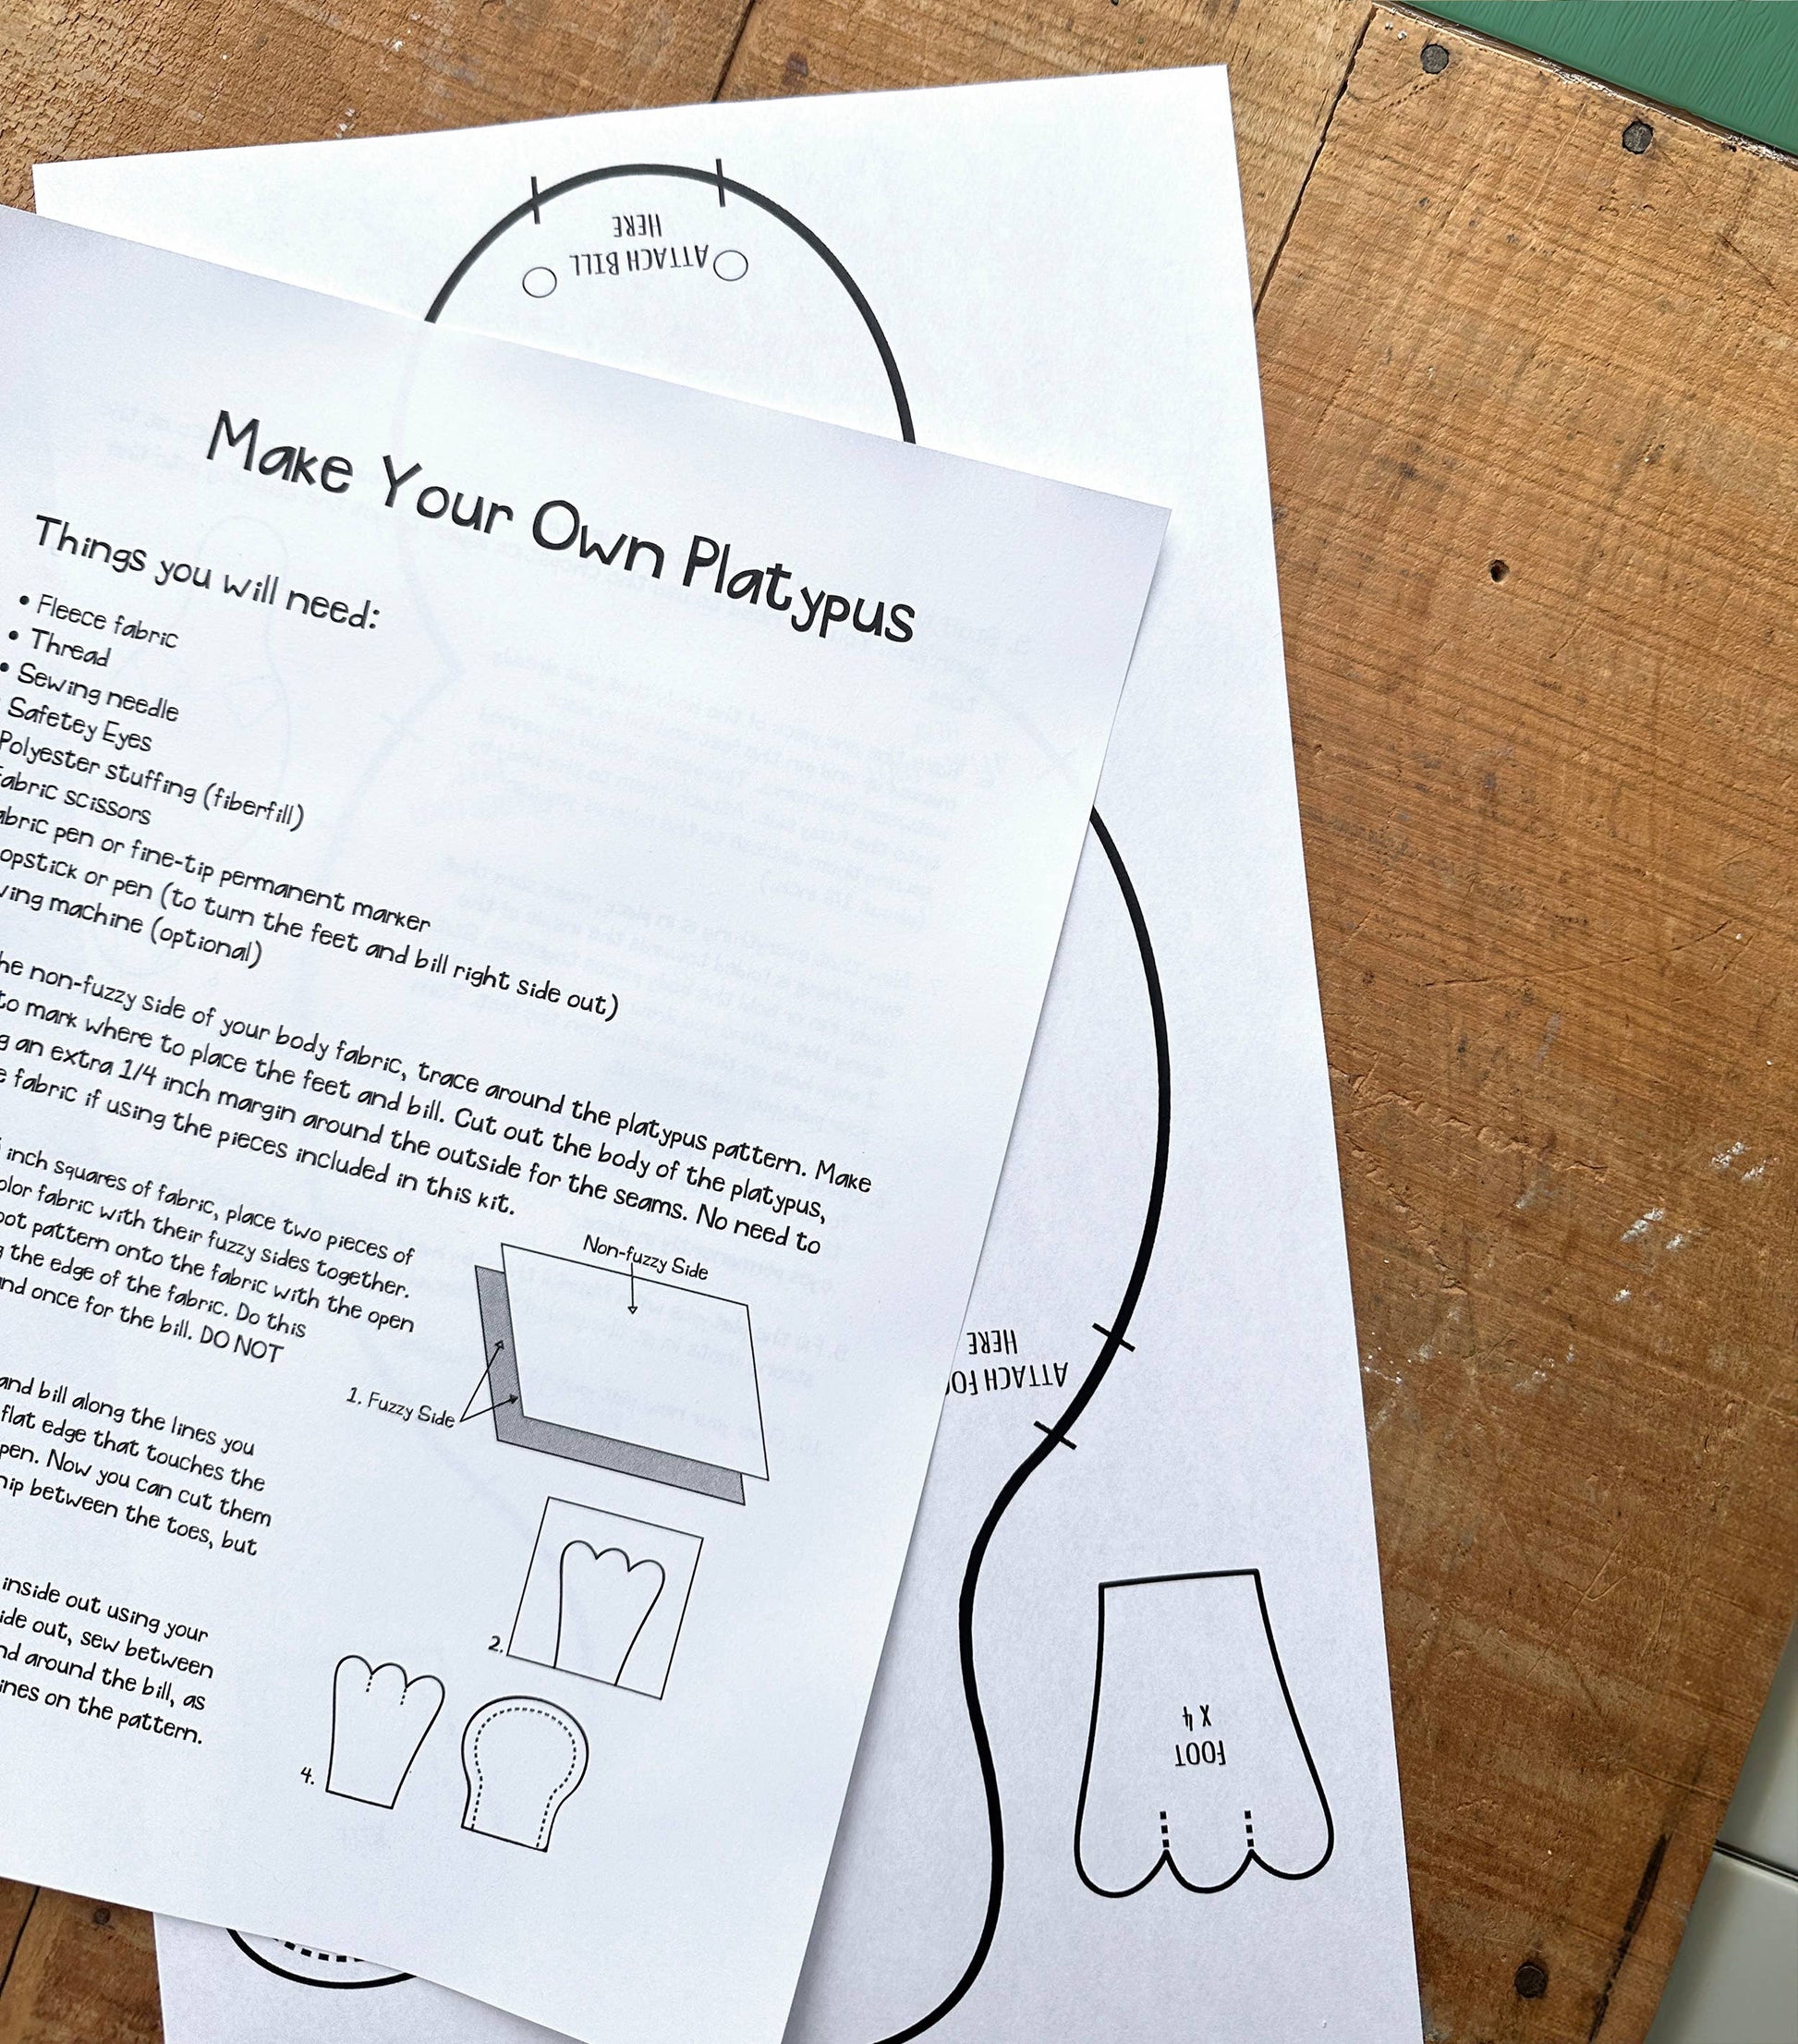 Make Your Own Platypus
Things you will need:
• Fleece fabric
• Thread
• Sewing needle
Safetey Eyes
Polyester stuffing (fiberfill)
scissors
pen or fine-tip permanent marker
or pen (to turn the feet and bill right side out)
machine (optional)
non-fuzzy side of your body fabric, trace around the platypus pattern. Make
to mark where to place the feet and bill. Cut out the body of the platypus,
an extra 1/4 inch margin around the outside for the seams. No need to
fabric if using the pieces included in this kit.
inch squares of fabric, place two pieces of
fabric with their fuzzy sides together.
pattern onto the fabric with the open
the edge of the fabric. Do this
and once for the bill. DO NOT
and bill along the lines you
flat edge that touches the
Now you can cut them
between the toes, but
inside out using your
out, sew between
around the bill, as
on the pattern.
Non-fuzzy Side
1. Fuzzy Side
2.
4.
ATTACH BILL
HERE
ATTACH
HERE
FOOT
X 4